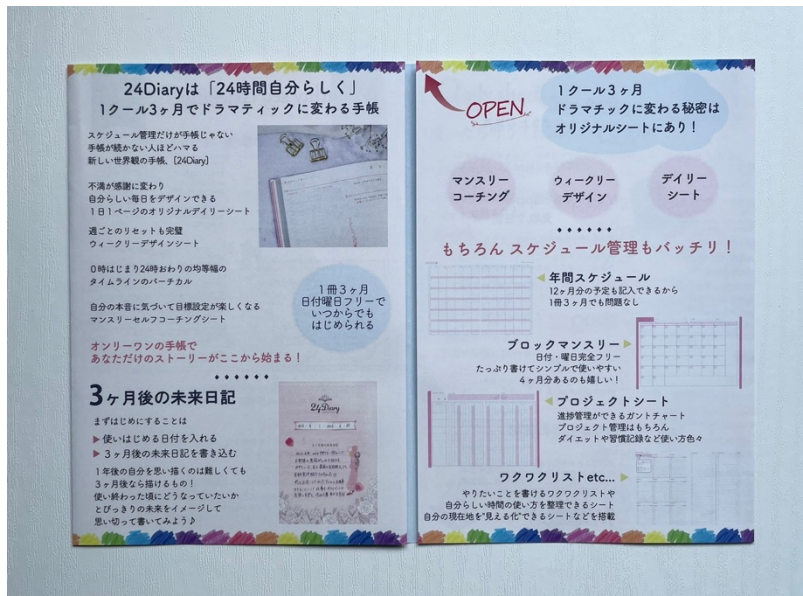 24Diaryは「24時間自分らしく」
1クール3ヶ月でドラマティックに変わる手帳
スケジュール管理だけが手帳じゃない
手帳が続かない人ほどハマる
新しい世界観の手帳、[24Diary]
不満が感謝に変わり
自分らしい毎日をデザインできる
1日1ページのオリジナルデイリーシート
週ごとのリセットも完璧
ウィークリーデザインシート
0時はじまり24時おわりの均等幅の
タイムラインのバーチカル
自分の本音に気づいて目標設定が楽しくなる
マンスリーセルフコーチングシート
1冊3ヶ月
日付曜日フリーで
いつからでも
はじめられる
オンリーワンの手帳で
あなただけのストーリーがここから始まる！
3ヶ月後の未来日記
まずはじめにすることは
▶ 使いはじめる日付を入れる
▶ 3ヶ月後の未来日記を書き込む
1年後の自分を思い描くのは難しくても
3ヶ月後なら描けるもの！
使い終わった頃にどうなっていたいか
とびっきりの未来をイメージして
思い切って書いてみよう♪
24Diary
OPEN
1クール3ヶ月
ドラマチックに変わる秘密は
オリジナルシートにあり！
マンスリー
コーチング
ウィークリー
デザイン
デイリー
シート
もちろん スケジュール管理もバッチリ！
年間スケジュール
12ヶ月分の予定も記入できるから
1冊3ヶ月でも問題なし
ブロックマンスリー
日付・曜日完全フリー
たっぷり書けてシンプルで使いやすい
4ヶ月分あるのも嬉しい！
プロジェクトシート
進捗管理ができるガントチャート
プロジェクト管理はもちろん
ダイエットや習慣記録など使い方色々
ワクワクリストetc...
やりたいことを書けるワクワクリストや
自分らしい時間の使い方を整理できるシート
自分の現在地を"見える化"できるシートなどを搭載